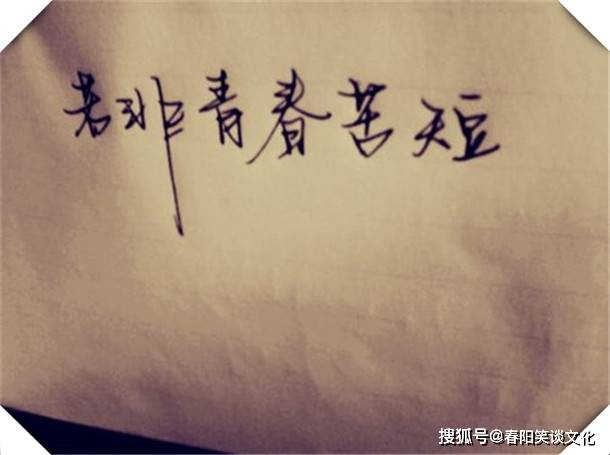 若非青春苦短
搜狐号@春阳笑谈文化